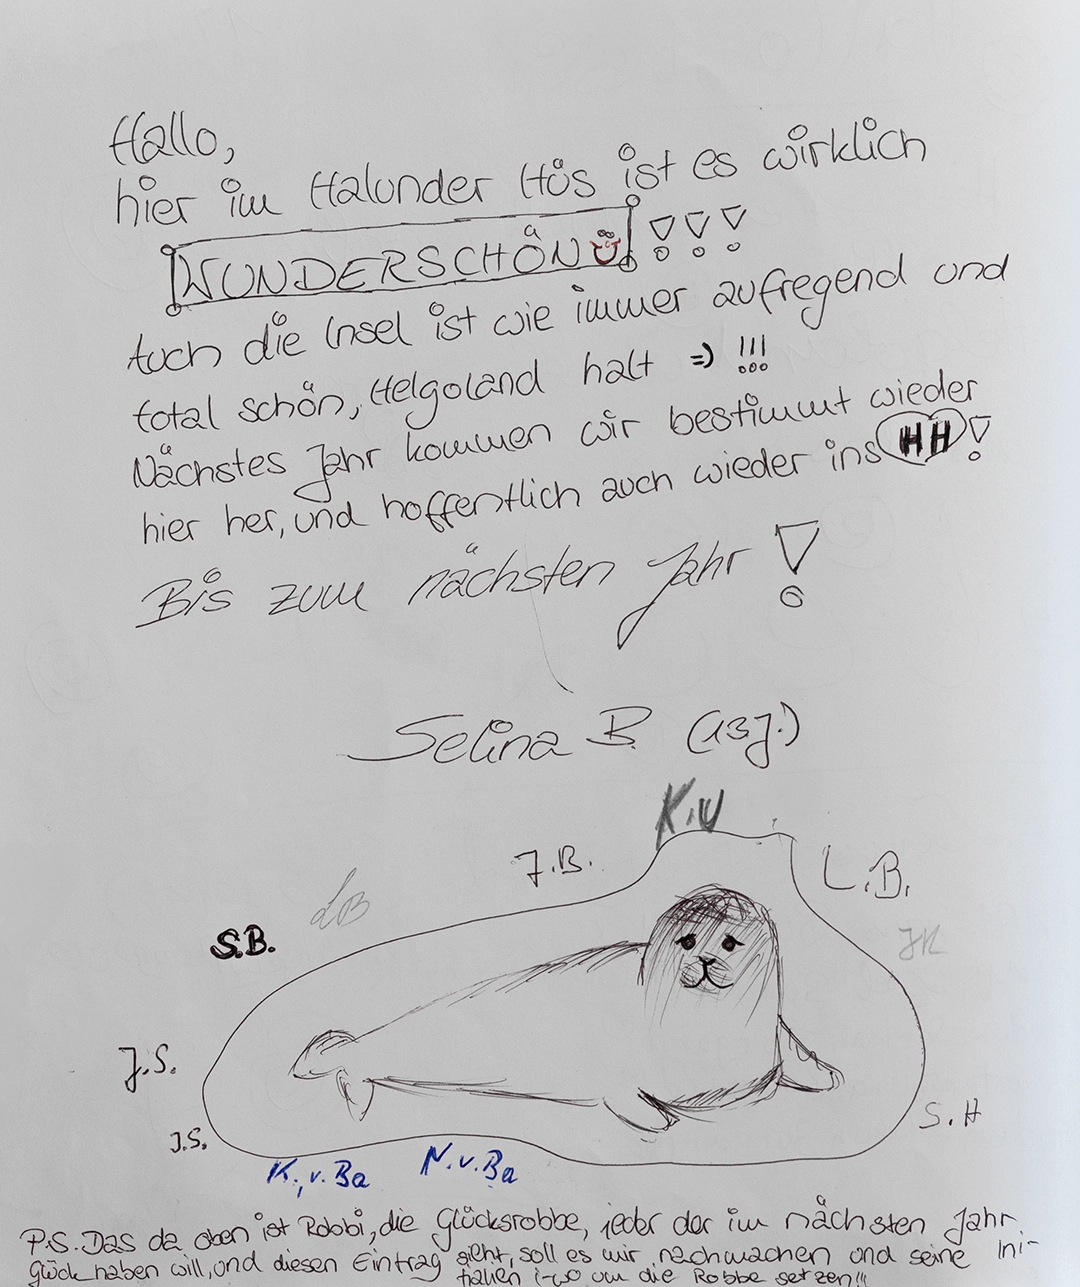 Hallo,
hier im Halunder Hüs ist es wirklich
WUNDERSCHÖN !!!
Auch die Insel ist wie immer aufregend und
total schön, Helgoland halt =) !!!
Nächstes Jahr kommen wir bestimmt wieder
hier her, und hoffentlich auch wieder ins HH!
Bis zum nächsten Jahr!
Selina B. (13J.)
K.W
J.B.
L.B.
LB
S.B.
JK
J.S.
S.H
J.S.
K.v.Ba
N.v.Ba
P.S. Das da oben ist Robbi, die Glücksrobbe, jeder der im nächsten Jahr
Glück haben will, und diesen Eintrag sieht, soll es mir nachmachen und seine Ini-
tialen i-wo um die Robbe setzen!!!